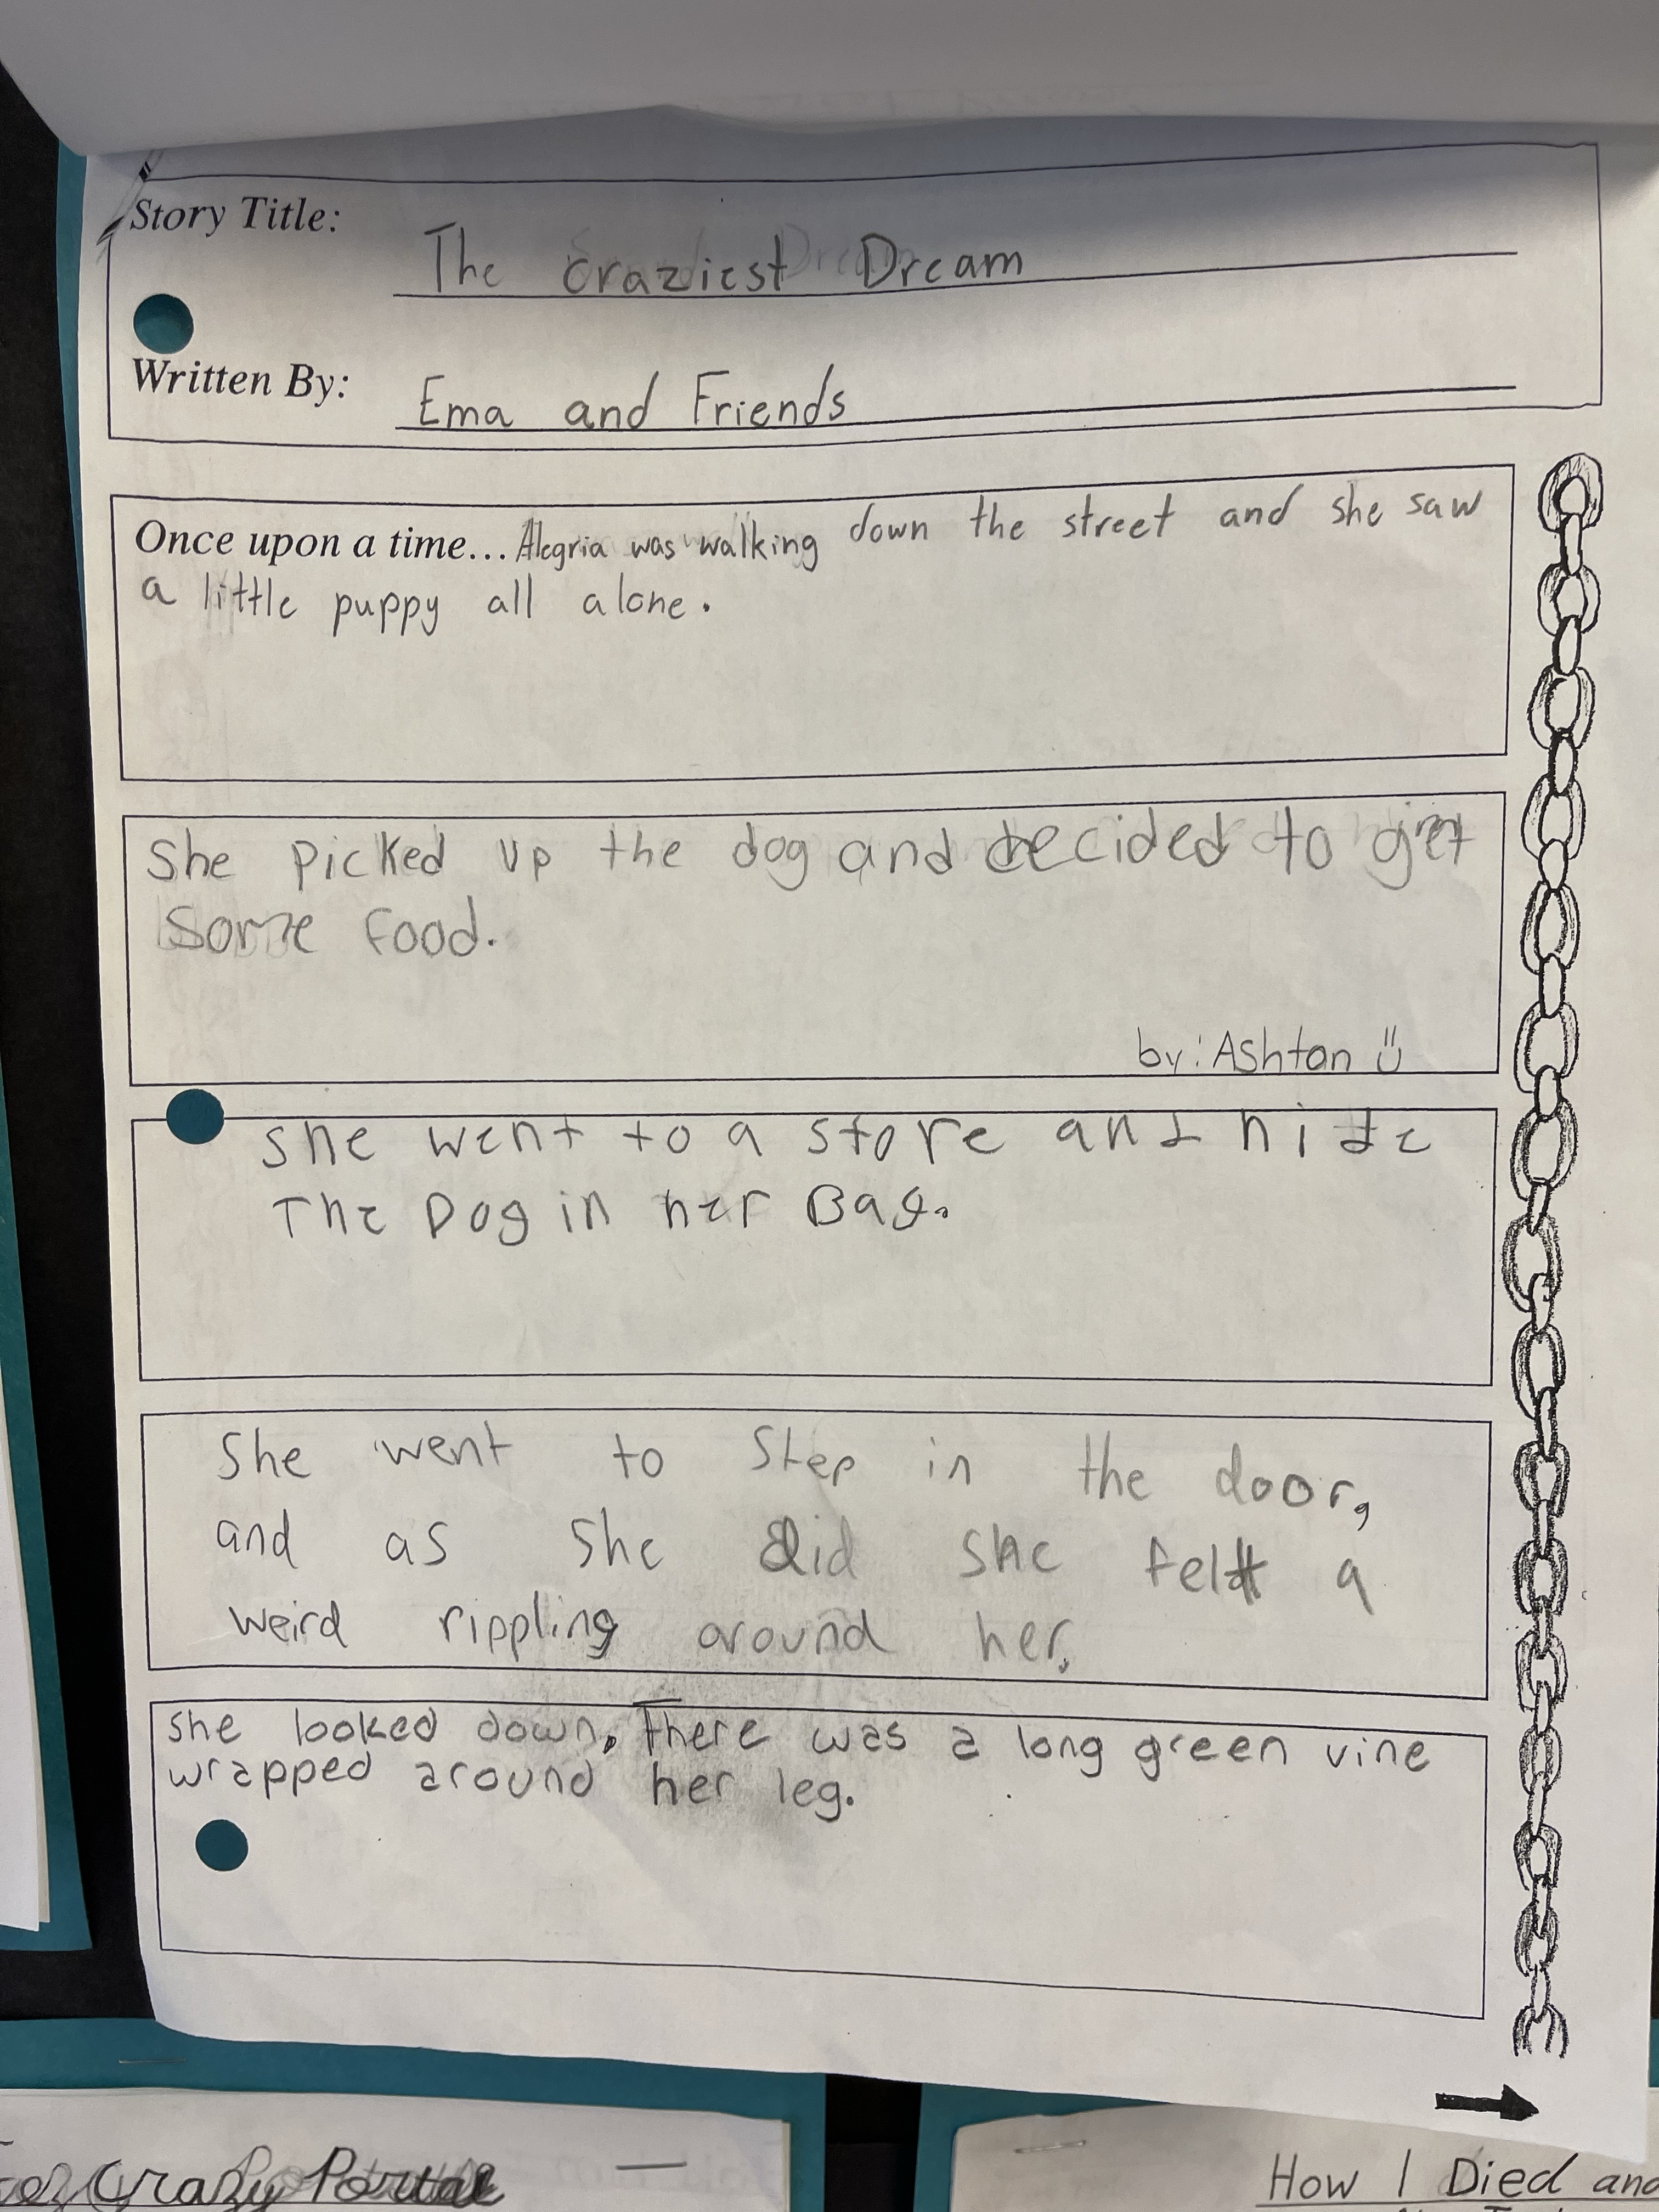 Story Title:
The Craziest Dream
Written By:
Ema and Friends
Once upon a time... Alegria was walking down the street and she saw
a little puppy all alone.
She picked up the dog and decided to get
some food.
by: Ashton
she went to a store and hide
The Dog in her Bag.
She went to step in the door,
and as she did she felt a
weird rippling around her.
she looked down. There was a long green vine
wrapped around her leg.
Crazy Portal
How I Died and